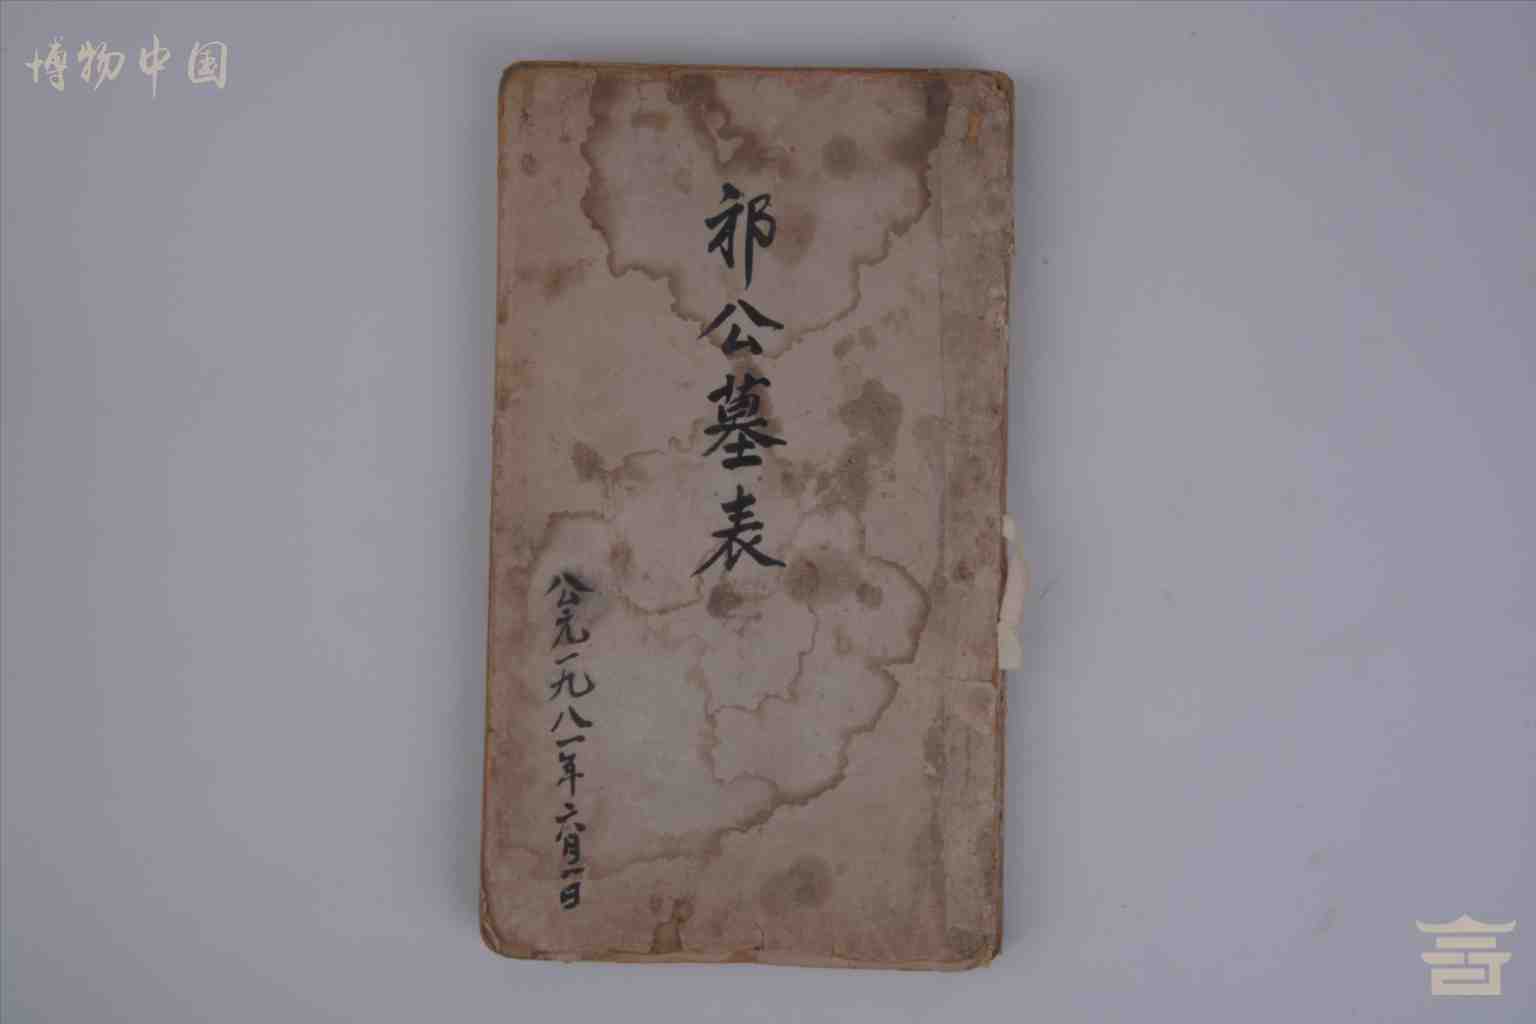 博物中国
祁公墓表
公元一九八一年六月一日